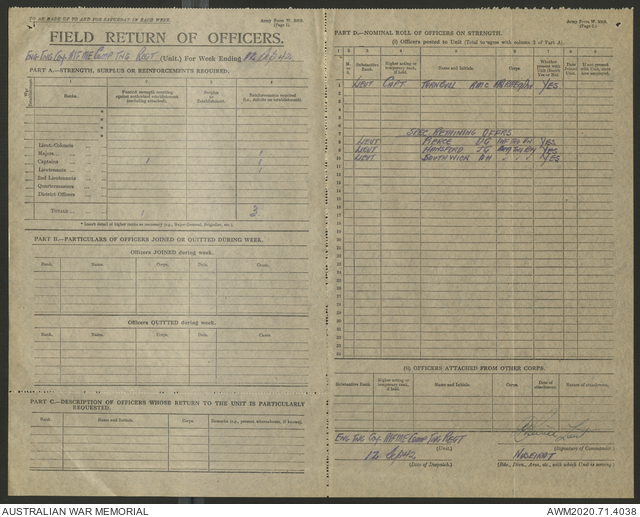 TO BE MADE UP TO AND FOR SATURDAY IN EACH WEEK.
Army Form W. 3008.
(Page 1).
FIELD RETURN OF OFFICERS.
Eng Tng Coy AIF ME Comp Tng Regt (Unit.) For Week Ending 12 Sep 42
PART A.—STRENGTH, SURPLUS OR REINFORCEMENTS REQUIRED.
Ranks.
Posted strength counting against authorized establishment (excluding attached).
Surplus to Establishment.
Reinforcements required (i.e., deficits on establishment)
Lieut.-Colonels
Majors 1
Captains 1 1
Lieutenants 1
2nd Lieutenants
Quartermasters
District Officers
TOTALS 1 3
PART B.—PARTICULARS OF OFFICERS JOINED OR QUITTED DURING WEEK.
Officers JOINED during week.
Rank. Name. Corps. Date. Cause.
Officers QUITTED during week.
Rank. Name. Corps. Date. Cause.
PART C.—DESCRIPTION OF OFFICERS WHOSE RETURN TO THE UNIT IS PARTICULARLY REQUESTED.
Rank. Name and Initials. Corps.
PART D.—NOMINAL ROLL OF OFFICERS ON STRENGTH.
(Page 2.)
(i) Officers posted to Unit (Total to agree with column 2 of Part A).
Substantive Rank.
Higher acting or temporary rank, if held.
Name and Initials.
Corps.
Whether present with Unit (State Yes or No).
If not present with Unit, state how employed.
LIEUT CAPT TURNBULL YES
SPEC REMAINING OFFRS
LIEUT PIERCE DG INF TNG BN YES
LIEUT HANSFORD TG YES
LIEUT SOUTHWICK YES
(ii) OFFICERS ATTACHED FROM OTHER CORPS.
Substantive Rank.
Higher acting or temporary rank, if held.
Name and Initials.
Corps.
Date of attachment.
Nature of attachment.
Eng Tng Coy AIF ME Comp Tng Regt
(Unit.)
(Signature of Commander)
12 Sep 42
(Date of Despatch.)
NUSEIRAT
(Bde., Divn., Area, etc., with which Unit is serving.)
AUSTRALIAN WAR MEMORIAL
AWM2020.71.4038